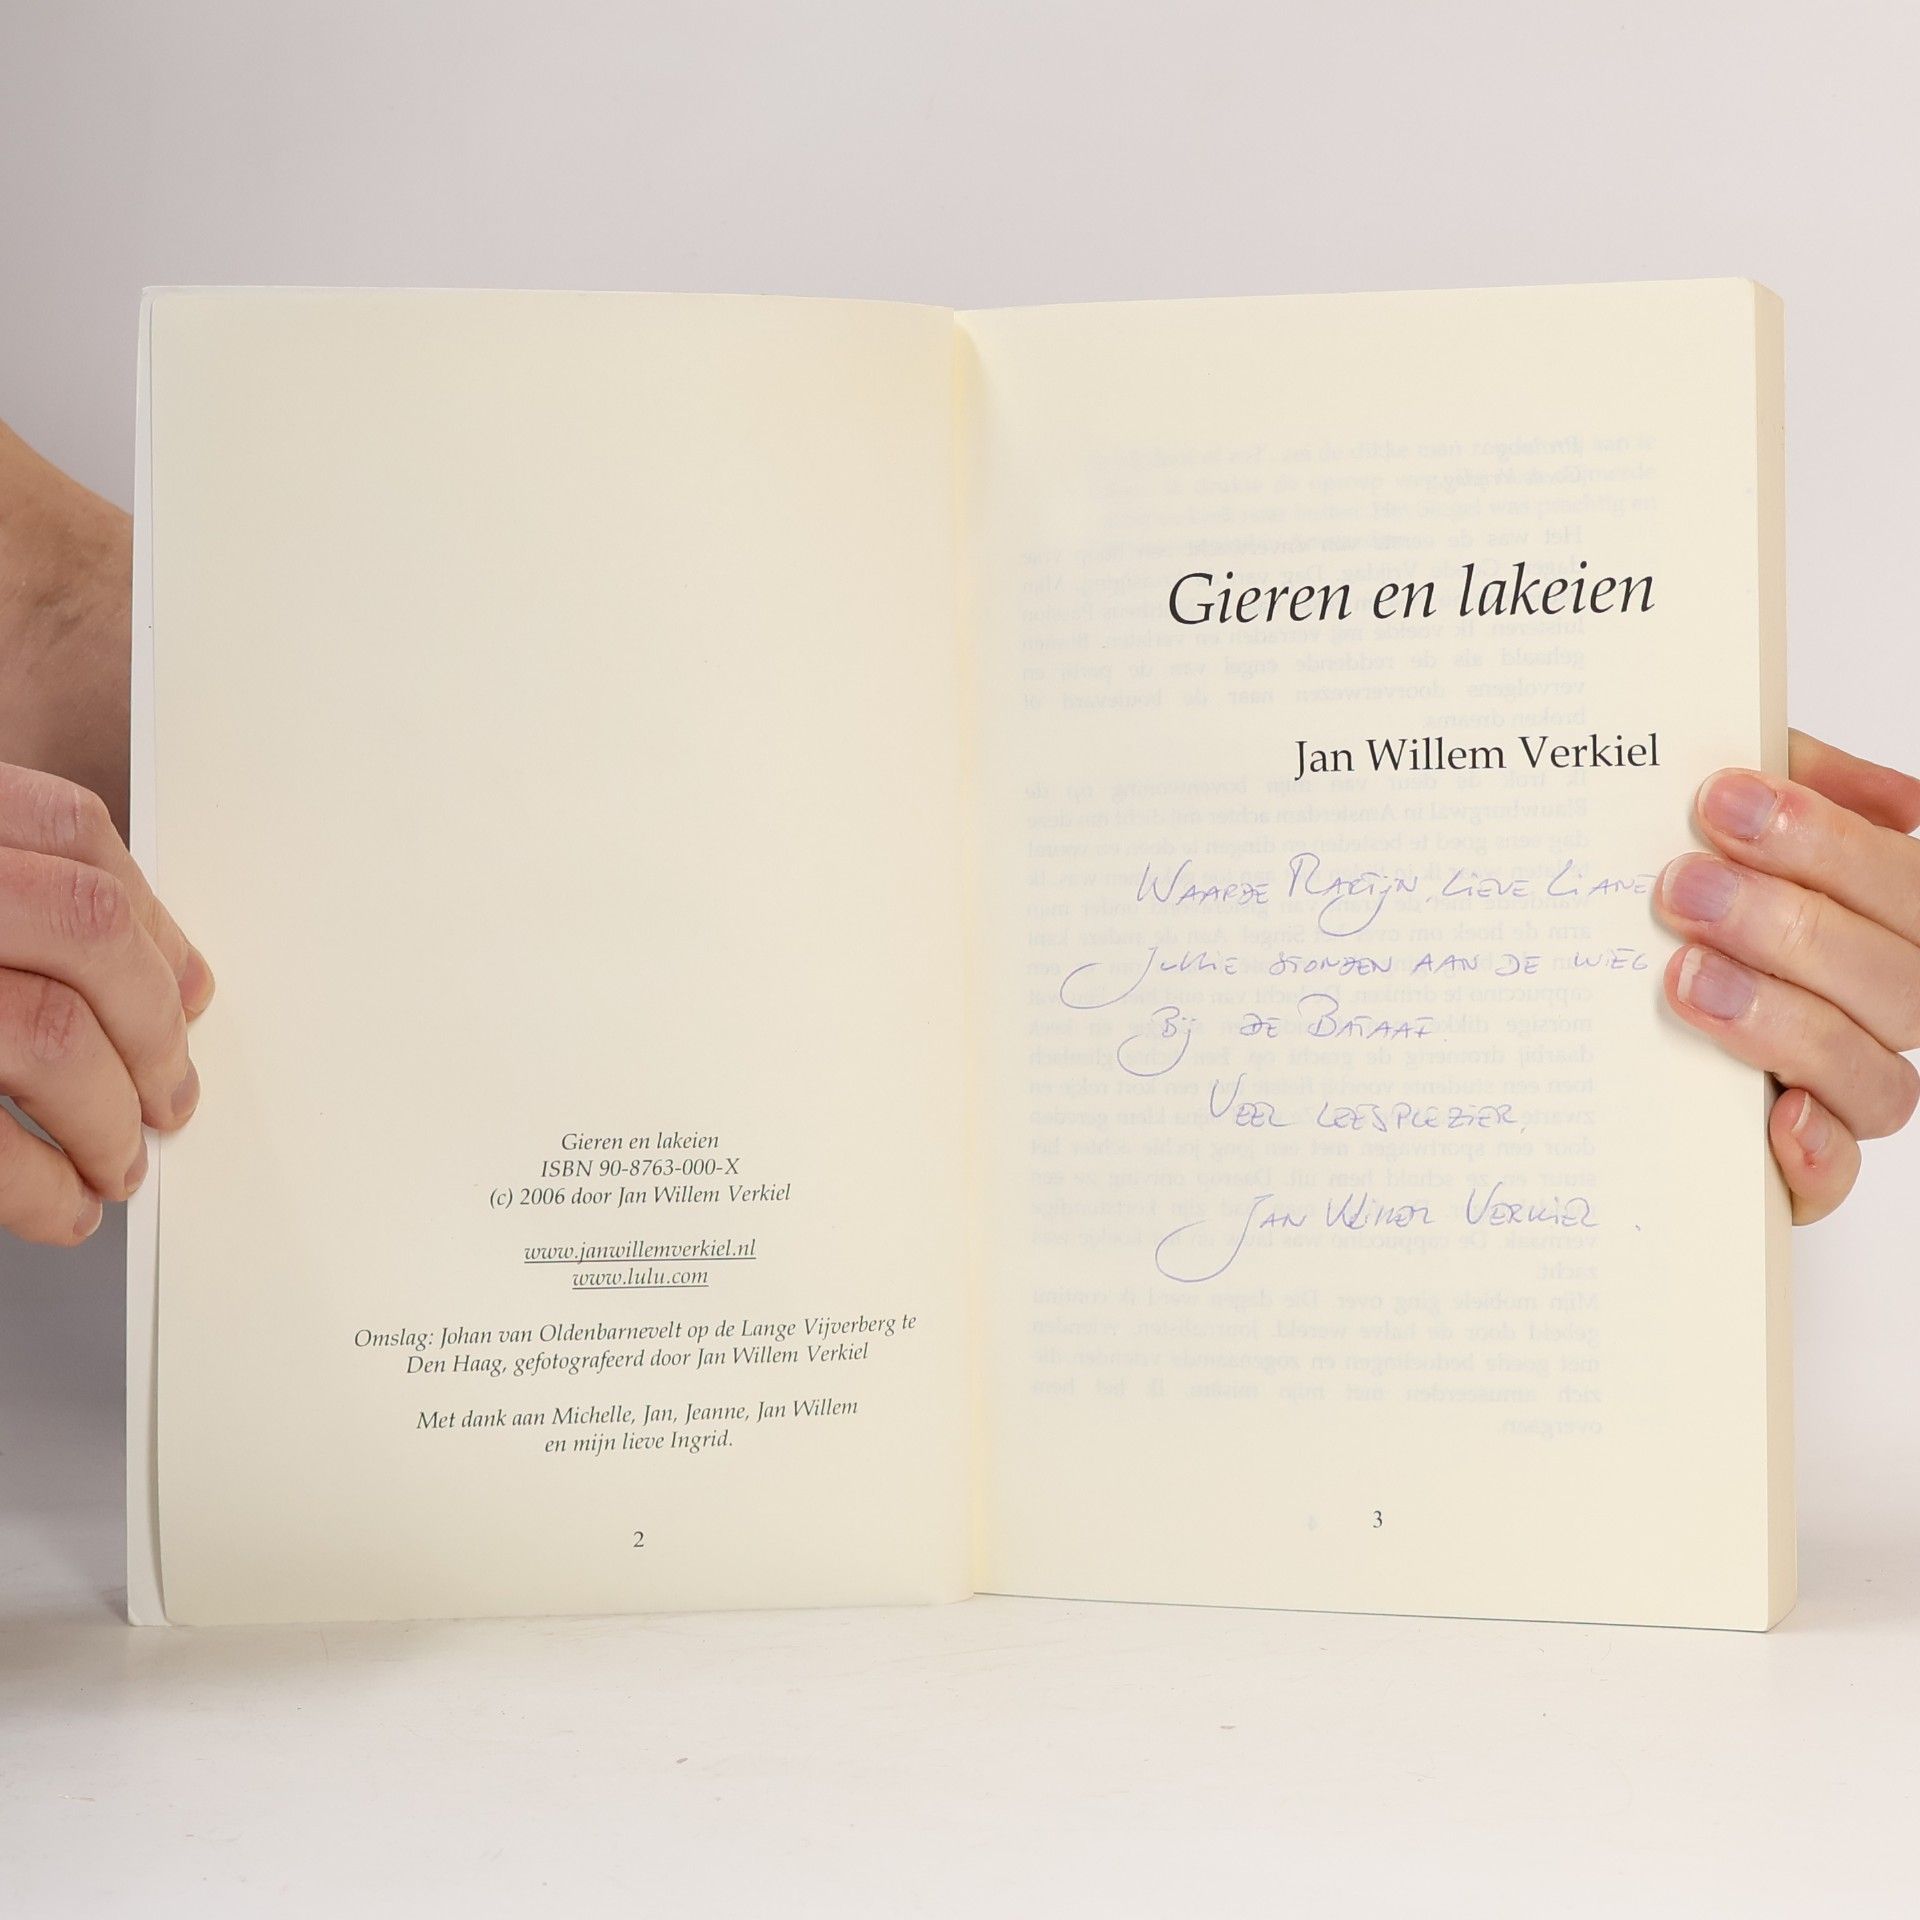 Gieren en lakeien
ISBN 90-8763-000-X
(c) 2006 door Jan Willem Verkiel
www.janwillemverkiel.nl
www.lulu.com
Omslag: Johan van Oldenbarnevelt op de Lange Vijverberg te
Den Haag, gefotografeerd door Jan Willem Verkiel
Met dank aan Michelle, Jan, Jeanne, Jan Willem
en mijn lieve Ingrid.
2
Gieren en lakeien
Jan Willem Verkiel
WAARDE MARTIJN, LIEVE LIANE
JULLIE STONDEN AAN DE WIEG
BIJ DE BATAAF.
VEEL LEESPLEZIER,
JAN WILLEM VERKIEL.
3